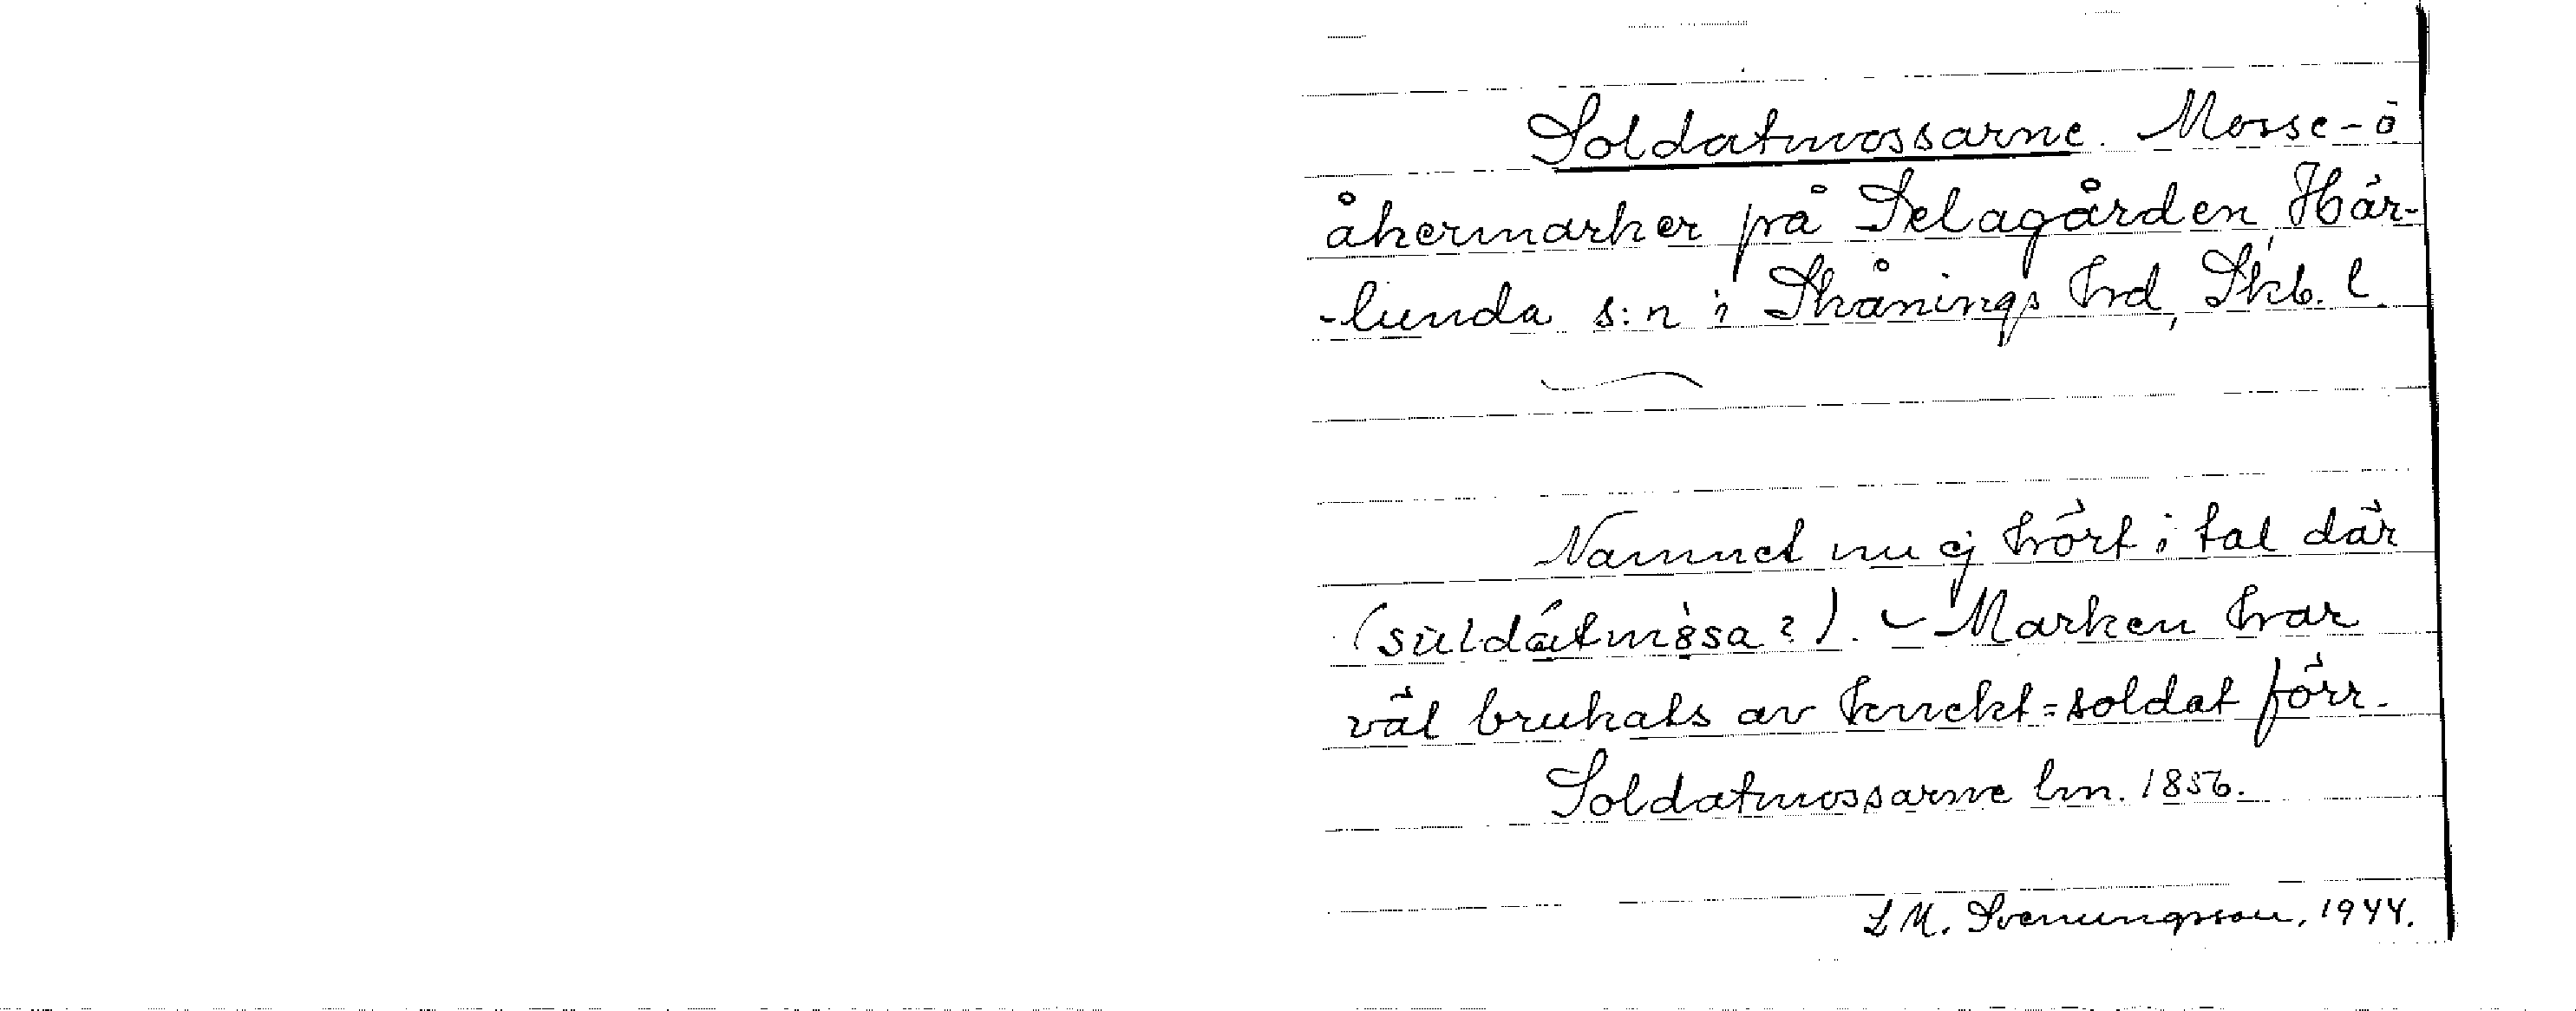 Soldatmossarne. Mosse- o
åkermarker på Selagården, Här-
-lunda s:n i Skånings hd, Skb. l.
Namnet nu ej hört i tal där
(suldátmòsa?). – Marken har
väl brukats av knekt=soldat förr.
Soldatmossarne lm. 1856.
L M. Svenungsson, 1944.